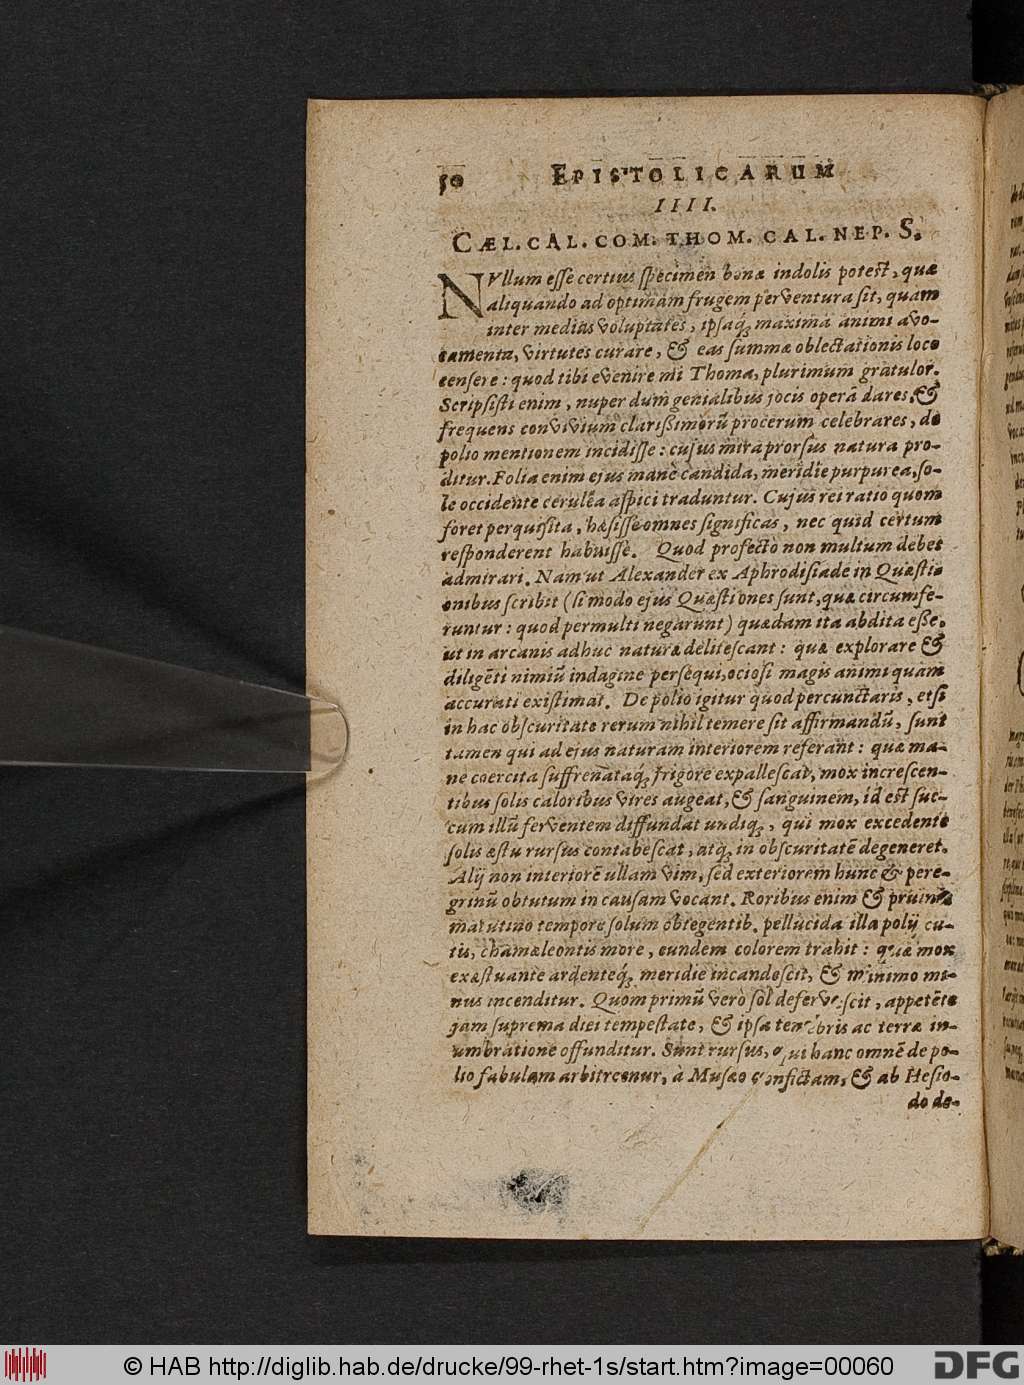 50 EPISTOLICARUM
IIII.
CÆL. CAL. COM. THOM. CAL. NEP. S.
NVllum esse certius specimen bonæ indolis potest, quæ
aliquando ad optimam frugem perventura sit, quam
inter medias voluptates, ipsaq; maxima animi avo-
camenta, virtutes curare, & eas summæ oblectationis loco
censere: quod tibi evenire mi Thoma, plurimum gratulor.
Scripsisti enim, nuper dum genialibus jocis operā dares, &
frequens convivium clarißimorū procerum celebrares, de
polio mentionem incidisse: cujus mira prorsus natura pro-
ditur. Folia enim ejus manè candida, meridie purpurea, so-
le occidente cerulea aspici traduntur. Cujus rei ratio quom
foret perquisita, hæsisse omnes significas, nec quid certum
responderent habuisse. Quod profectò non multum debet
admirari. Nam ut Alexander ex Aphrodisiade in Quæsti-
onibus scribit (si modo ejus Quæstiones sunt, quæ circumfe-
runtur: quod permulti negarunt) quædam ita abdita esse,
ut in arcanis adhuc naturæ delitescant: quæ explorare &
diligēti nimiū indagine persequi, ociosi magis animi quam
accurati existimat. De polio igitur quod percunctaris, etsi
in hac obscuritate rerum nihil temere sit affirmandū, sunt
tamen qui ad ejus naturam interiorem referant: quæ ma-
ne coercita suffrenataq; frigore expallescat, mox increscen-
tibus solis caloribus vires augeat, & sanguinem, id est suc-
cum illū ferventem diffundat undiq;, qui mox excedente
solis æstu rursus contabescat, atq; in obscuritatē degeneret.
Alij non interiorē ullam vim, sed exteriorem hunc & pere-
grinū obtutum in causam vocant. Roribus enim & pruinis
matutino tempore solum obtegentib. pellucida illa polij cu-
tis, chamæleontis more, eundem colorem trahit: quæ mox
exæstuante ardenteq; meridie incandescit, & minimo mi-
nus incenditur. Quom primū verò sol defervescit, appetēte
jam suprema diei tempestate, & ipsa tenebris ac terræ in-
umbratione offunditur. Sunt rursus, qui hanc omnē de po-
lio fabulam arbitrentur, à Musæo confictam, & ab Hesio-
do de-
© HAB http://diglib.hab.de/drucke/99-rhet-1s/start.htm?image=00060
DFG